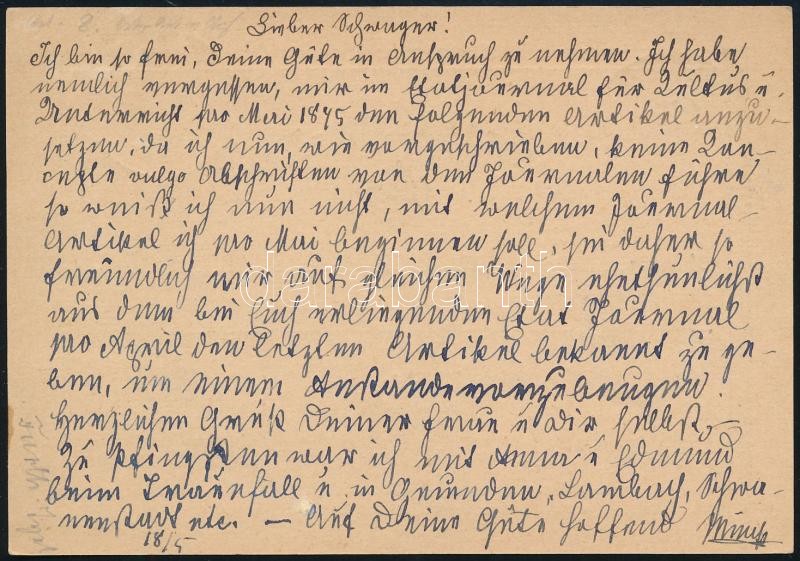 Lieber Schwager!
Ich bin so frei, Deine Güte in Anspruch zu nehmen. Ich habe
nemlich vergessen, mir im Etatjournal für Cultus u.
Unterricht pro Mai 1875 den folgenden Artikel anzu-
setzen, da ich nun, wie vorgeschrieben, keine Con-
cepte vulgo Abschriften von den Journalen führe
so weiß ich nun nicht, mit welchem Journal-
Artikel ich pro Mai beginnen soll, sei daher so
freundlich mir auf gleichem Wege ehethunlichst
aus dem bei Euch erliegenden Etat Journal
pro April den letzten Artikel bekannt zu ge-
ben, um einem Anstande vorzubeugen.
Herzlichen Gruß Deiner Frau u Dir selbst,
Zu Pfingsten war ich mit Anna u Edmund
beim Traunfall u. in Gmunden, Lambach, Schwa-
nenstadt etc. — Auf Deine Güte hoffend
18/5
darabanth